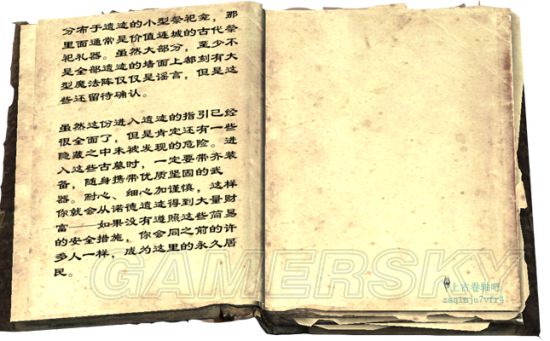 分布于遗迹的小型祭祀龛，那
里面通常是价值连城的古代祭
祀礼器。虽然大部分，至少不
是全部遗迹的墙面上都刻有大
型魔法阵仅仅是谣言，但是这
些还留待确认。
虽然这份进入遗迹的指引已经
很全面了，但是肯定还有一些
隐藏之中未被发现的危险。进
入这些古墓时，一定要带齐装
备，随身携带优质坚固的武
器。耐心、细心加谨慎，这样
你就会从诺德遗迹得到大量财
富——如果没有遵照这些简易
的安全措施，你会同之前的许
多人一样，成为这里的永久居
民。
GAMERSKY
上古卷轴吧
zaq1mju7vfr4